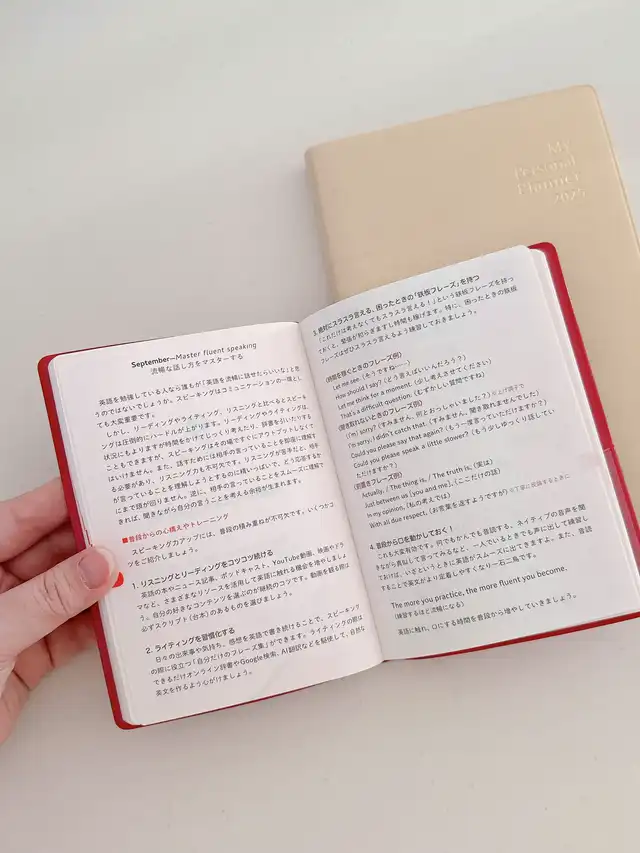 My
Personal
Planner
2025
September—Master fluent speaking
流暢な話し方をマスターする
英語を勉強している人なら誰もが「英語を流暢に話せたらいいな」と思
うのではないでしょうか。スピーキングはコミュニケーションの一環とし
ても大変重要です。
しかし、リーディングやライティング、リスニングと比べるとスピーキ
ングは圧倒的にハードルが上がります。リーディングやライティングは、
状況にもよりますが時間をかけてじっくり考えたり、辞書を引いたりする
こともできますが、スピーキングはその場ですぐにアウトプットしなくて
はいけません。また、話すためには相手の言っていることを即座に理解す
る必要があり、リスニング力も不可欠です。リスニングが苦手だと、相手
が言っていることを理解しようとするのに精いっぱいで、どう応答するか
にまで頭が回りません。逆に、相手の言っていることをスムーズに理解で
きれば、聞きながら自分の言うことを考える余裕が生まれます。
■普段からの心構えやトレーニング
スピーキング力アップには、普段の積み重ねが不可欠です。いくつかコ
ツをご紹介しましょう。
1. リスニングとリーディングをコツコツ続ける
英語の本やニュース記事、ポッドキャスト、YouTube動画、映画やドラ
マなど、さまざまなリソースを活用して英語に触れる機会を増やしましょ
う。自分の好きなコンテンツを選ぶのが継続のコツです。動画を観る際は
必ずスクリプト（台本）のあるものを選びましょう。
2. ライティングを習慣化する
日々の出来事や気持ち、感想を英語で書き続けることで、スピーキング
の際に役立つ「自分だけのフレーズ集」ができます。ライティングの際は
できるだけオンライン辞書やGoogle検索、AI翻訳などを駆使して、自然な
英文を作るよう心がけましょう。
3. 絶対にスラスラ言える、困ったときの「鉄板フレーズ」を持つ
「これだけは考えなくてもスラスラ言える！」という鉄板フレーズを持っ
ておくと、緊張が和らぎますし時間も稼げます。特に、困ったときの鉄板
フレーズはぜひスラスラ言えるよう練習しておきましょう。
〈時間を稼ぐときのフレーズ例〉
Let me see.（そうですね……）
How should I say?（どう言えばいいんだろう？）
Let me think for a moment.（少し考えさせてください）
That's a difficult question.（むずかしい質問ですね）
〈聞き取れないときのフレーズ例〉
(I'm) sorry?（すみません、何とおっしゃいました？）※上げ調子で
(I'm sorry,) I didn't catch that.（すみません、聞き取れませんでした）
Could you please say that again?（もう一度言っていただけますか？）
Could you please speak a little slower?（もう少しゆっくり話してい
ただけますか？）
〈前置きフレーズ例〉
Actually, / The thing is, / The truth is,（実は）
Just between us (you and me),（ここだけの話）
In my opinion,（私の考えでは）
With all due respect,（お言葉を返すようですが）※丁寧に反論するときに
4. 普段から口を動かしておく！
これも大変有効です。何でもかんでも音読する、ネイティブの音声を聞
きながら真似して言ってみるなど、一人でいるときでも声に出して練習し
ておけば、いざというときに英語がスムーズに出てきますよ。また、音読
することで英文がより定着しやすくなり一石二鳥です。
The more you practice, the more fluent you become.
（練習するほど流暢になる）
英語に触れ、口にする時間を普段から増やしていきましょう。